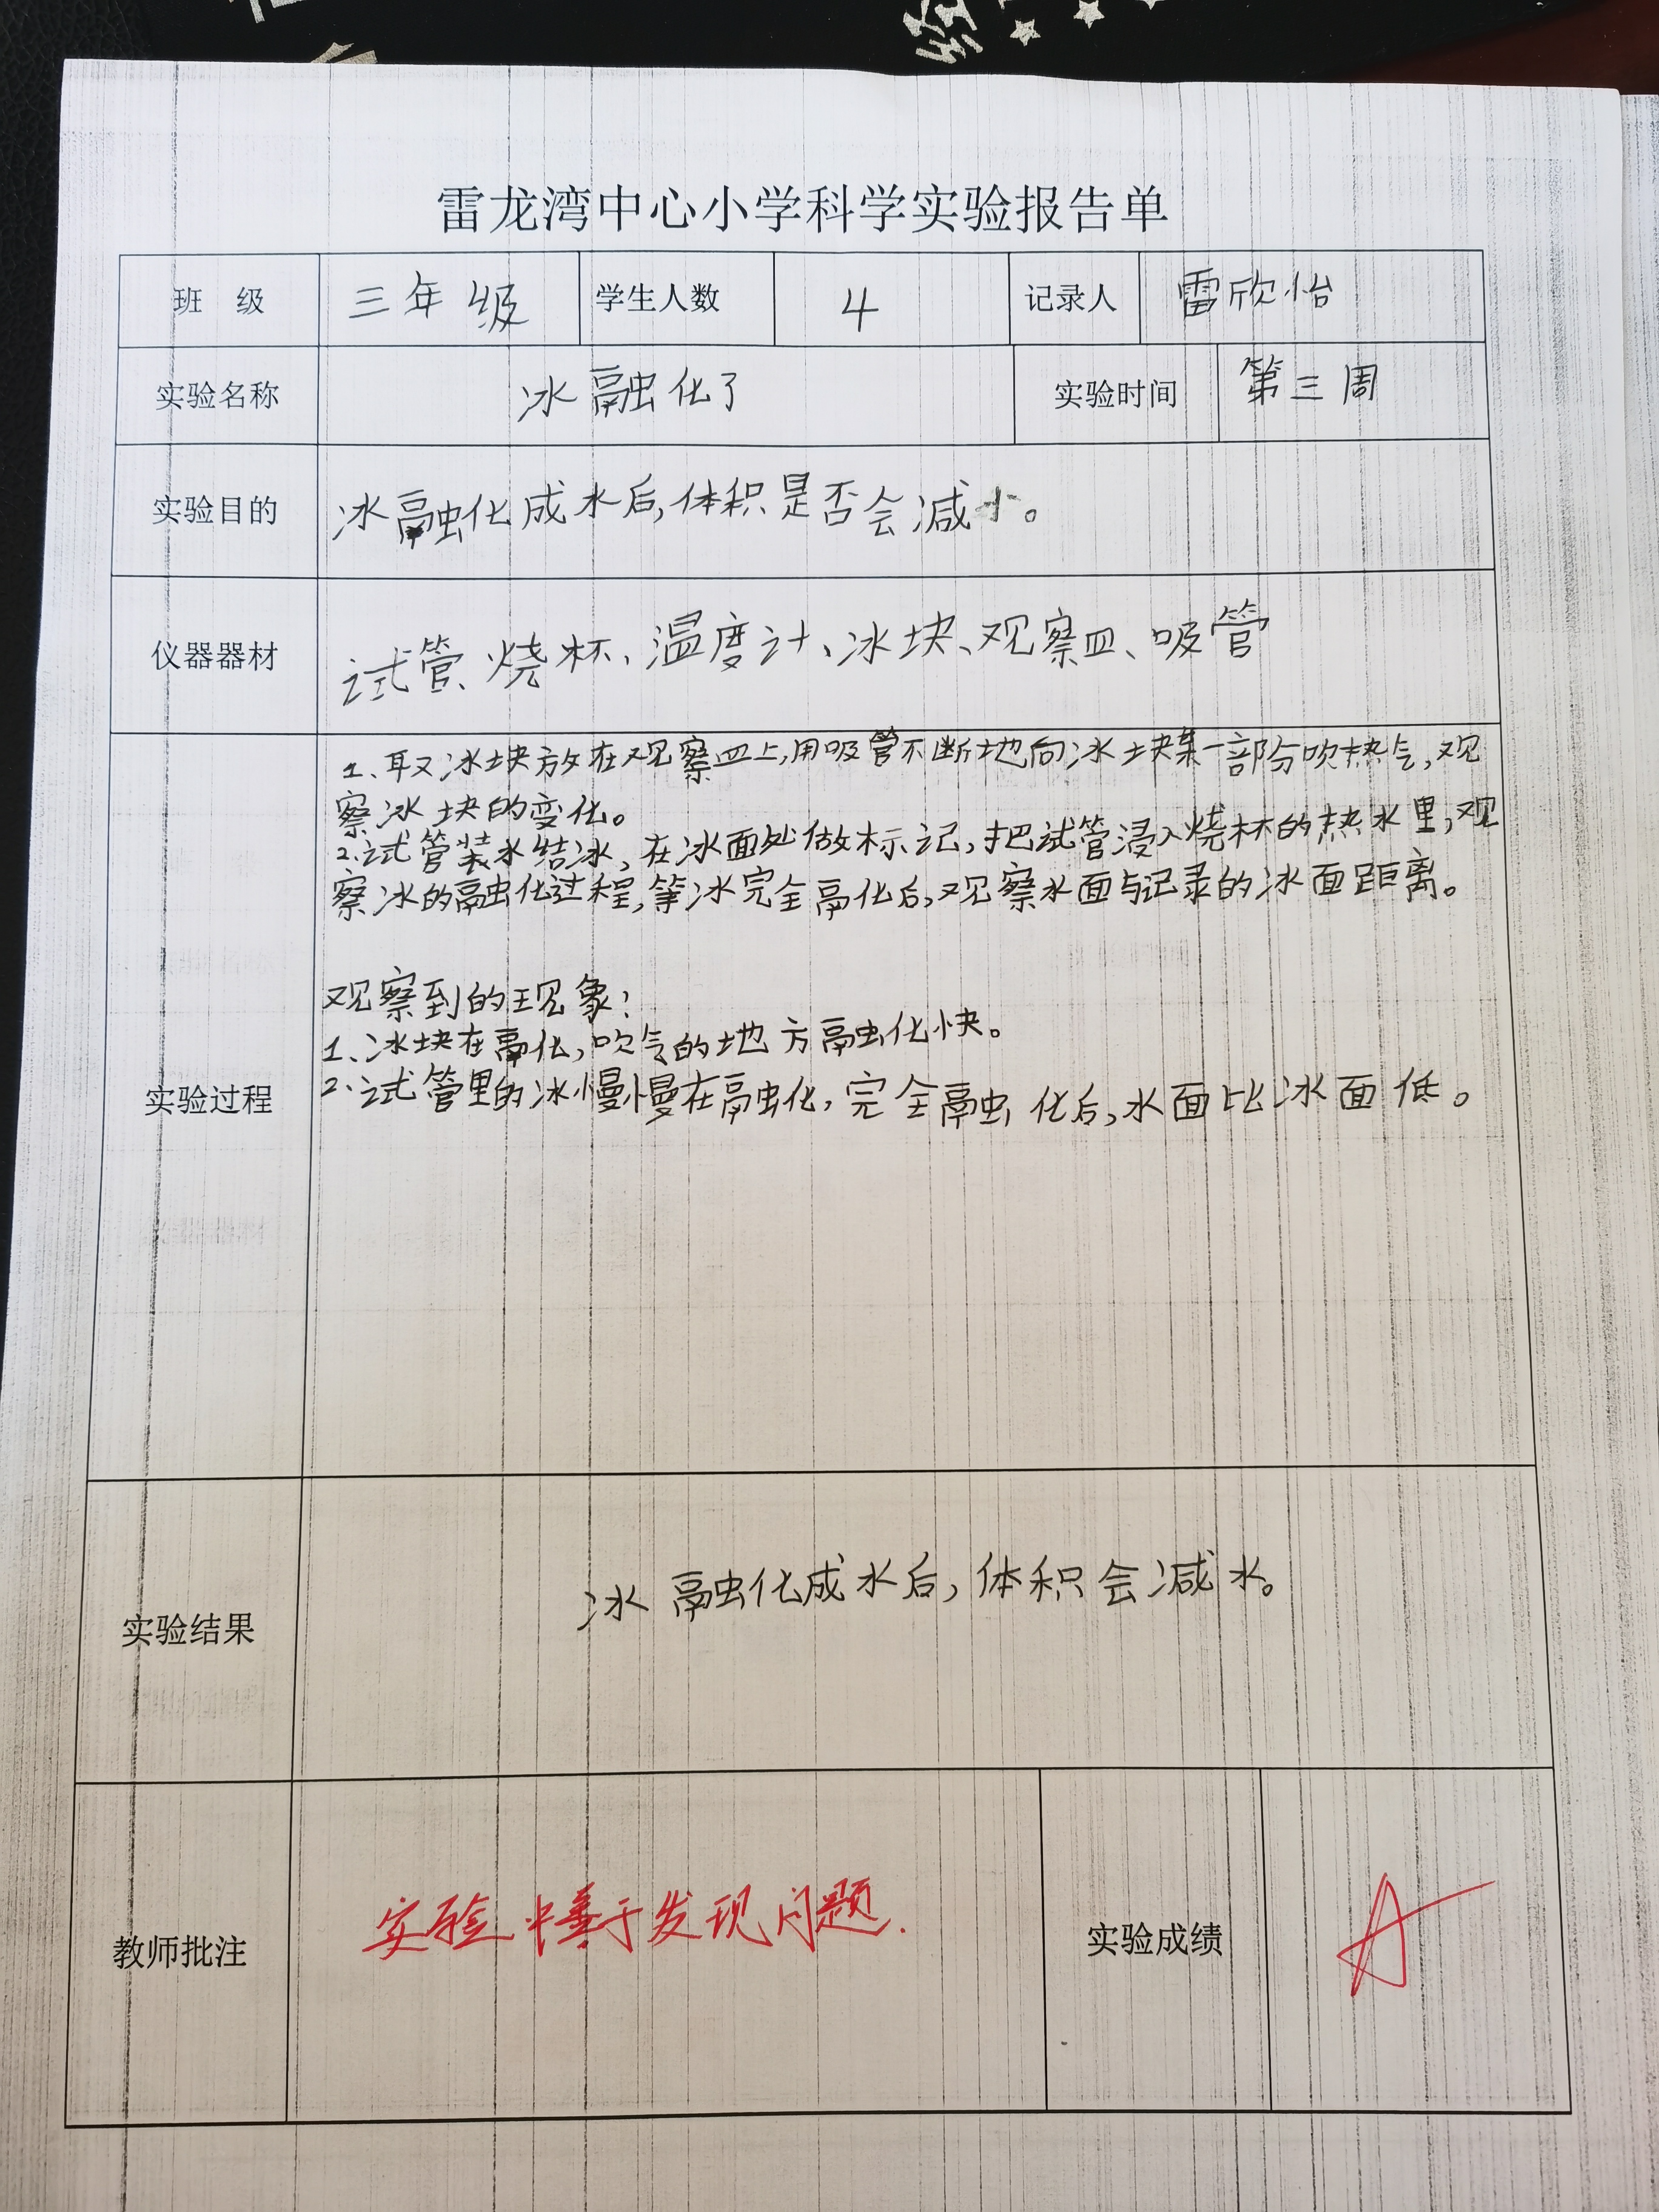 雷龙湾中心小学科学实验报告单
班 级 三年级 学生人数 4 记录人 雷欣怡
实验名称 冰融化了 实验时间 第三周
实验目的 冰融化成水后,体积是否会减小。
仪器器材 试管、烧杯、温度计、冰块、观察皿、吸管
1、取冰块放在观察皿上,用吸管不断地向冰块某一部分吹热气,观
察冰块的变化。
2.试管装水结冰,在冰面处做标记,把试管浸入烧杯的热水里,观
察冰的融化过程,等冰完全鬲化后,观察水面与记录的冰面距离。
实验过程
观察到的现象:
1、冰块在鬲化,吹气的地方融化快。
2.试管里的冰慢慢在融化,完全融化后,水面比冰面低。
实验结果 冰融化成水后,体积会减水。
教师批注 实验中善于发现问题. 实验成绩 A